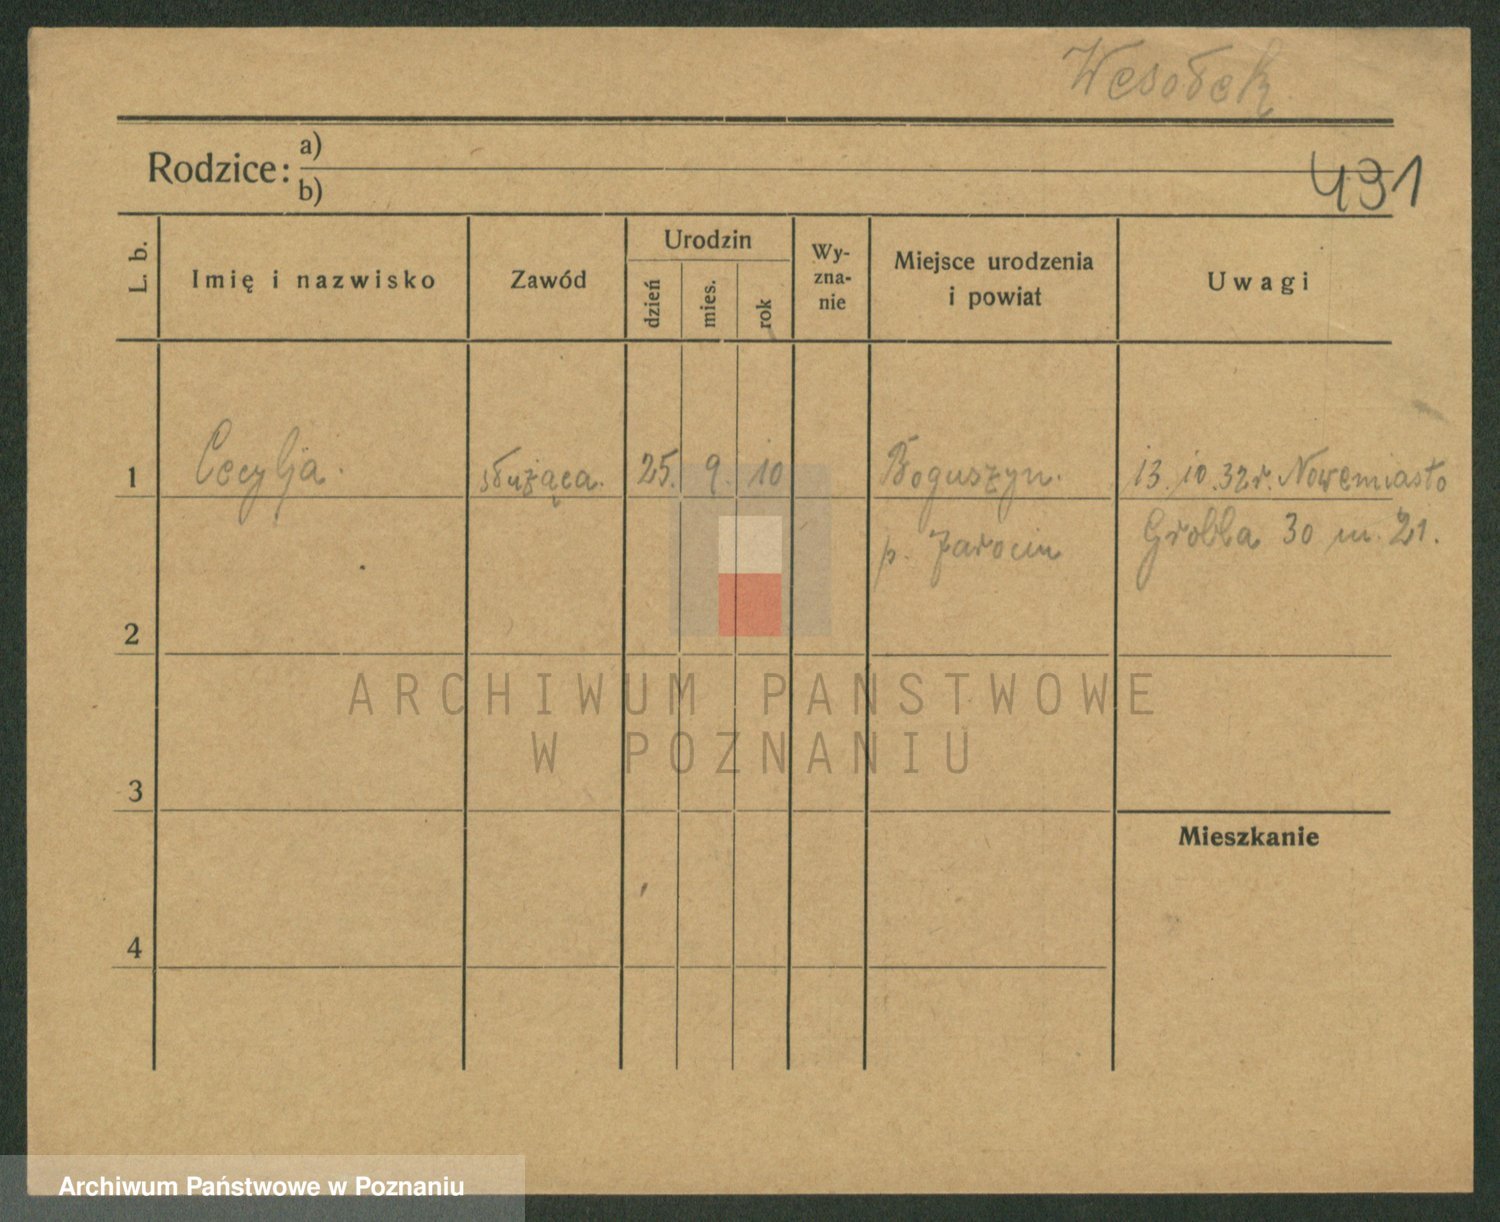 Wesołek
Rodzice: a)
b)
431
L. b.
Imię i nazwisko
Zawód
Urodzin
dzień
mies.
rok
Wy-
zna-
nie
Miejsce urodzenia
i powiat
Uwagi
1
Cecylja.
służąca.
25.
9.
10
Boguszyn.
p. Jarocin
13.10.32r. Nowemiasto
Grobla 30 m. 21.
2
3
4
Mieszkanie
ARCHIWUM PAŃSTWOWE
W POZNANIU
Archiwum Państwowe w Poznaniu